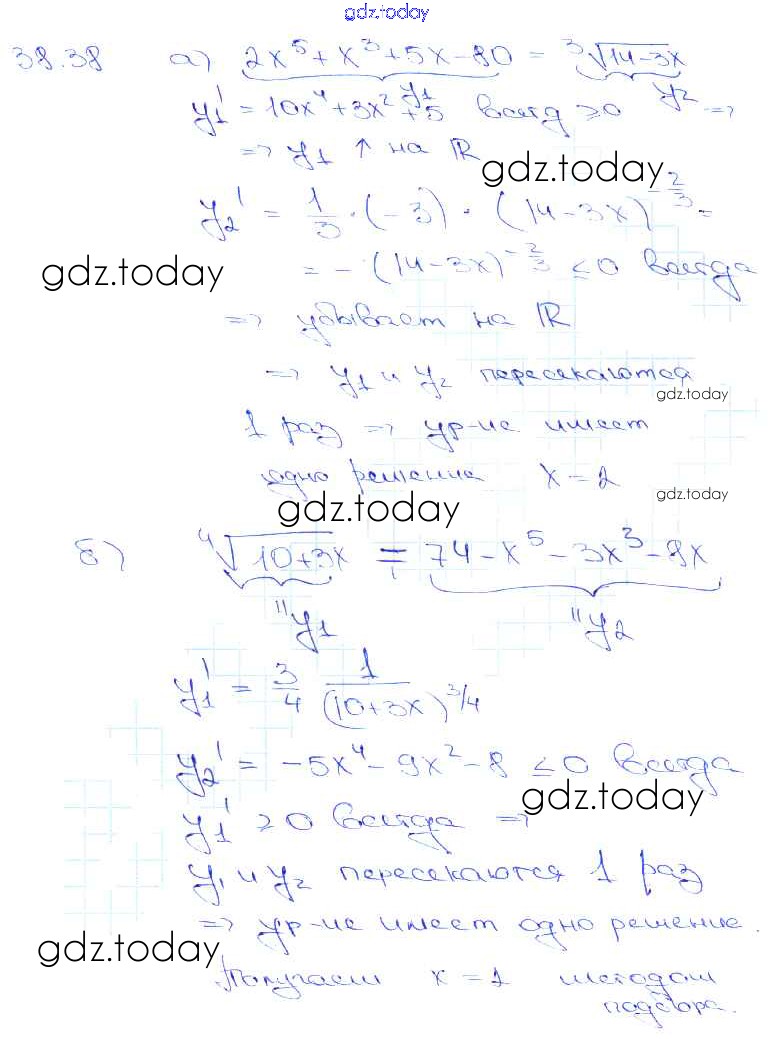 gdz.today
38.38 а) 2x⁵ + x³ + 5x - 80 = ∛(14-3x)
y₁ y₂
y₁' = 10x⁴ + 3x² + 5 всегд ≥0 =>
=> y₁ ↑ на ℝ
gdz.today
y₂' = 1/3 · (-3) · (14-3x)^(-2/3) =
= - (14-3x)^(-2/3) ≤ 0 всегда
gdz.today
=> убывает на ℝ
=> y₁ и y₂ пересекаются
gdz.today
1 раз => ур-ие имеет
одно решение x = 2
gdz.today
gdz.today
б) ⁴√(10+3x) = 74 - x⁵ - 3x³ - 8x
"y₁ "y₂
y₁' = 3/4 1/(10+3x)^(3/4)
y₂' = -5x⁴ - 9x² - 8 ≤ 0 всегда
gdz.today
y₁' ≥ 0 всегда =>
y₁ и y₂ пересекаются 1 раз
=> ур-ие имеет одно решение.
gdz.today
Получаем x = 2 методом
подбора.